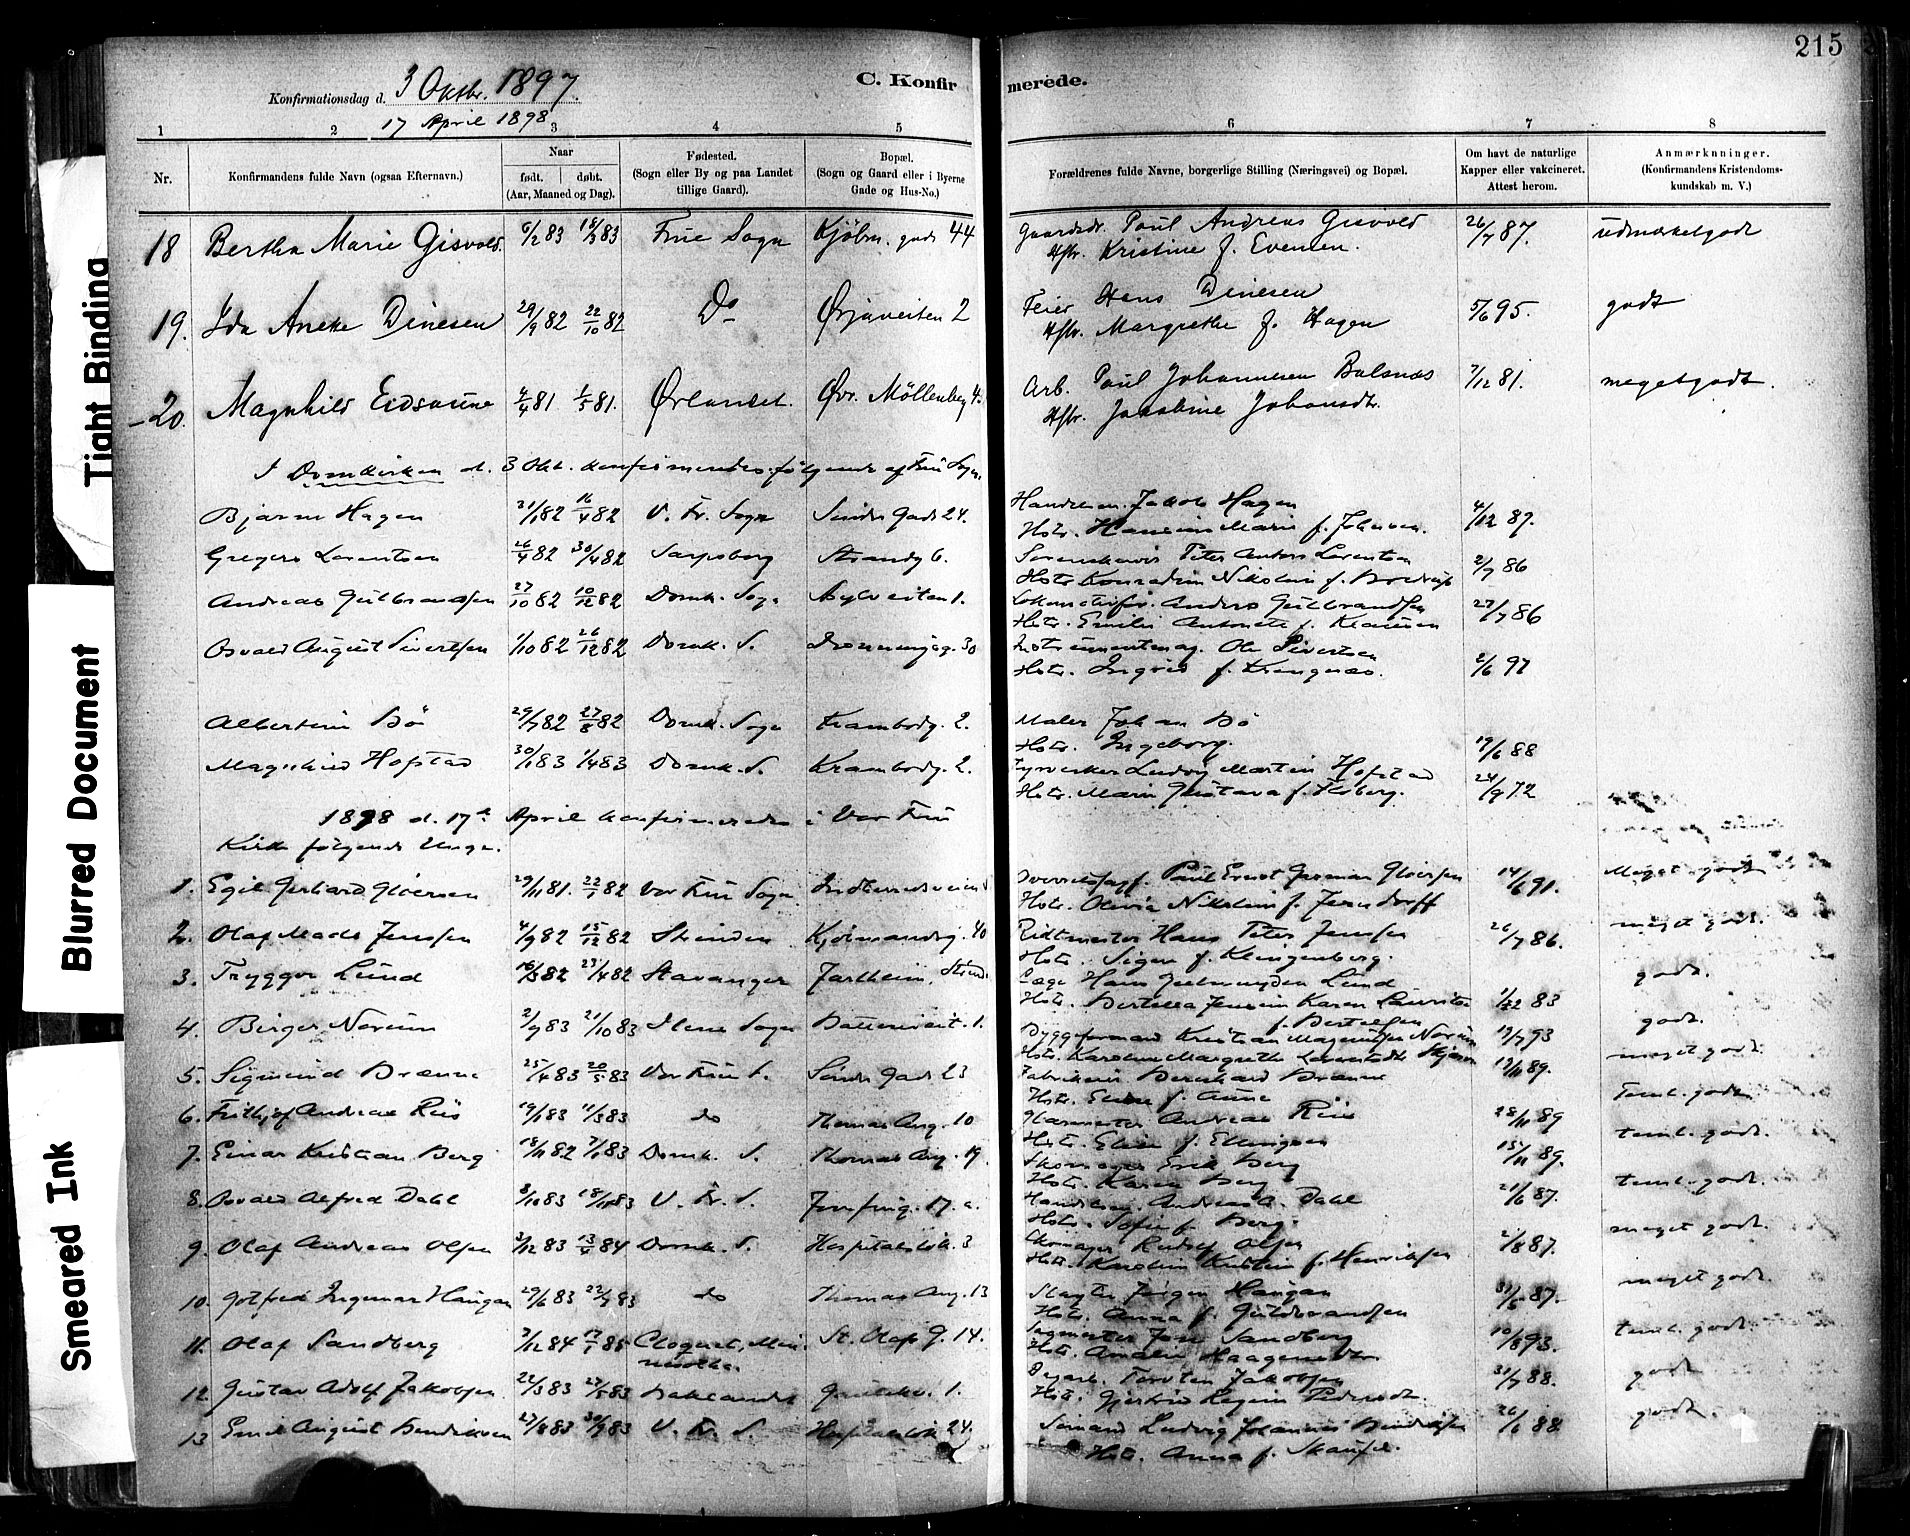 215
Konfirmationsdag d. 3 Oktbr. 1897.
17 April 1898
C. Konfirmerede.
1 2 3 4 5 6 7 8
Nr.
Konfirmandens fulde Navn (ogsaa Efternavn).
Naar
født. døbt.
(Aar, Maaned og Dag).
Fødested.
(Sogn eller By og paa Landet
tillige Gaard).
Bopæl.
(Sogn og Gaard eller i Byerne
Gade og Hus-No.)
Forældrenes fulde Navne, borgerlige Stilling (Næringsvei) og Bopæl.
Om havt de naturlige
Kapper eller vakcineret.
Attest herom.
Anmærkninger.
(Konfirmandens Kristendoms-
kundskab m. V.)
18 Bertha Marie Gisvold. 6/2 83 18/3 83 Frue Sogn Kjöbm. gade 44 Gaardsdr. Paul Andreas Gisvold 26/7 87. udmærketgodt
Hstr. Kristine f. Evensen.
19. Ida Anette Dinesen 29/9 82 22/10 82 Do Ørjaveiten 2 Feier Hans Dinesen 5/6 95. godt
Hstr. Margrethe f. Hagen
20. Magnhild Eidsaune 2/4 81 1/5 81. Ørlandet. Øvr. Möllenberg 4. Arb. Paul Johannesen Balsnæs 7/12 81. megetgodt.
Hstr. Jakobine Johansdtr.
I Domkirken d. 3 Okt. konfirmeredes følgende af Frue Sogn.
Bjarne Hagen 31/1 82 16/4 82 V. Fr. Sogn Söndre Gade 24. Handelsm. Jakob Hagen 4/12 87.
Hstr. Hansine Marie f. Johnsen.
Gregers Lorentzen 26/4 82 30/4 82 Sarpsborg Strandg 6. Peter Anton Lorentzen 2/7 86
Hstr. Konradine Nikoline f.
Andreas Gulbrandsen 27/10 82 10/12 82 Domk. Sogn 1. Lokomotivf. Anders Gulbrandsen 27/7 86
Hstr. Emilie Antonette f. Klausen
Osvald August Sivertsen 1/10 82 26/12 82 Domk. S. Dronningsg. 30 Instrumentmag. Ole Sivertsen 2/6 97
Hstr. Ingrid f. Krengnæs.
Albertine Bö 29/7 82 27/8 82 Domk. Sogn Krambodg. 2. Maler Johan Bö 19/6 88
Hstr. Ingeborg.
Magnhild Hofstad 30/1 83 1/4 83 Domk. S. Krambodg. 2. Fyrverker Ludvig Martin Hofstad 24/9 72
Hstr. Marie Gustava f.
1898 d. 17de April konfirmeredes i Vor Frue
Kirke følgende Unge.
1. Egil Gerhard Gløersen 29/11 81. 22/1 82 Vor Frue Sogn. Indherredsveien Paul Ernst German Gløersen 14/6 91. Meget godt
Hstr. Olivia Nikoline f. Jerndorff
2. Olaf Mads Jenssen 4/9 82 15/12 82 Strinden Kjöbmandsg. 40 Ridtmester Hans Peter Jenssen 26/7 86. meget godt.
Hstr. Signe f. Klingenberg.
3. Trygve Lund 16/3 82 23/4 82 Stavanger Jarlheim, Strind. Læge Hans Lund 1/12 83 godt.
Hstr. Bertella Jensine Karen Lauritze
f. Bertelsen
4. Birger Norum 2/9 83 21/10 83 Ilens Sogn 1. Byggeformand Kristian Magnussen Norum 19/7 93 godt.
Hstr. Karoline Margrethe
5. Sigmund Brænne 25/4 83 20/5 83 Vor Frue S. Söndre Gade 23 Fabrikeier Bernhard Brænne 19/11 89. meget godt
Hstr. Elise f. Anne
6. Frithjof Andreas Riis 19/1 83 11/3 83 do Thomas Ang. 10 Glarmester Andreas Riis 28/11 89 Teml. godt.
Hstr. Elise f. Ellingsen
7. Einar Kristian Berg 18/11 82 7/1 83 Domk. S. Thomas Ang. 19. Skomager Erik Berg 15/11 89. teml. godt.
Hstr. Karen Berg
8. Osvald Alfred Dahl 3/10 83 18/11 83 V. Fr. S. Jomfrug. 17. a. Handelsm. Andreas Dahl 21/6 87. teml. godt.
Hstr. Sofie f. Berg.
9. Olaf Andreas Olsen 3/12 83 13/4 84 Domk. S. Hospitalsløk. 3 Skomager Rudolf Olsen 2/8 87. meget godt.
Hstr. Karoline Kristine f. Henriksen
10. Gotfred Ingemar Haugan 29/6 83 22/7 83 do Thomas Ang. 13 Slagter Jørgen Haugan 31/5 87. meget godt.
Hstr. Anna f. Guldbrandsen
11. Olaf Sandberg 3/12 84 17/1 85 Cloquet, Min- St. Olafs G. 14. Sagmester Jens Sandberg 10/8 93. teml. godt.
nesotta. Hstr. Amalie Haagensdtr
12. Gustav Adolf Jakobsen 22/3 83 27/5 83 Baklandet 1. Torsten Jakobsen 31/7 88. godt
Hstr. Gjertrud Regine Pedersdt.
13 Emil August Bendiksen 27/8 83 30/9 83 V. Fr. S. Hospitalsløk 24. Sömand Ludvig Johannes Bendiksen 26/6 88 godt.
Hstr. Anna f.
Tight Binding
Blurred Document
Smeared Ink